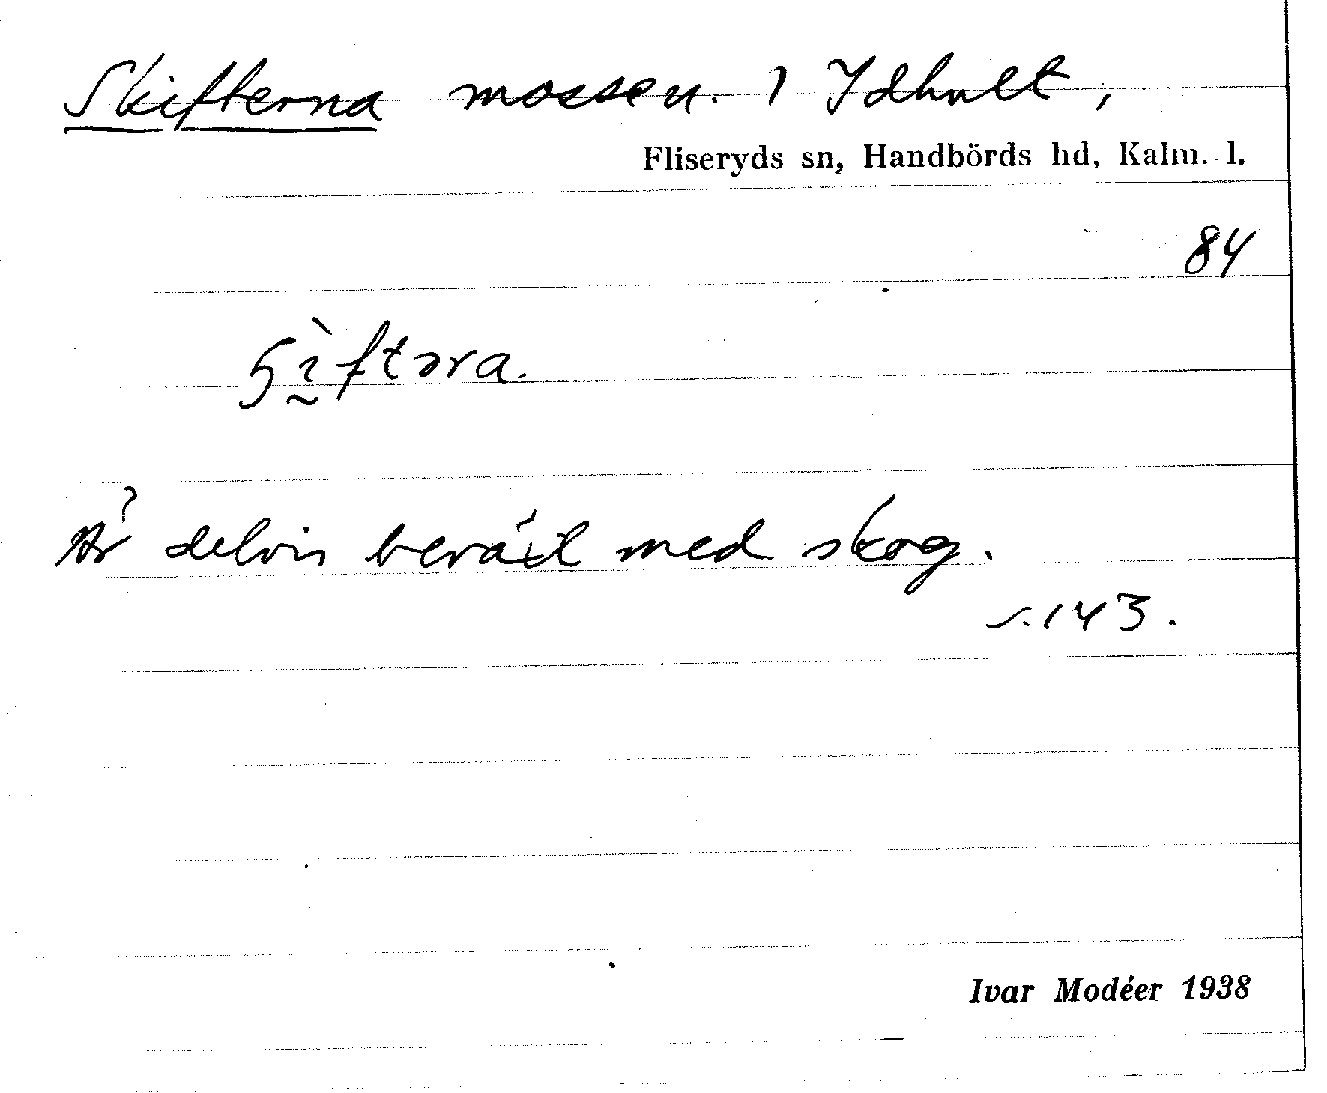 Skifterna mossen. 1 Idhult,
Fliseryds sn, Handbörds hd, Kalm. l.
84
Är delvis beväxt med skog.
s. 143.
Ivar Modéer 1938